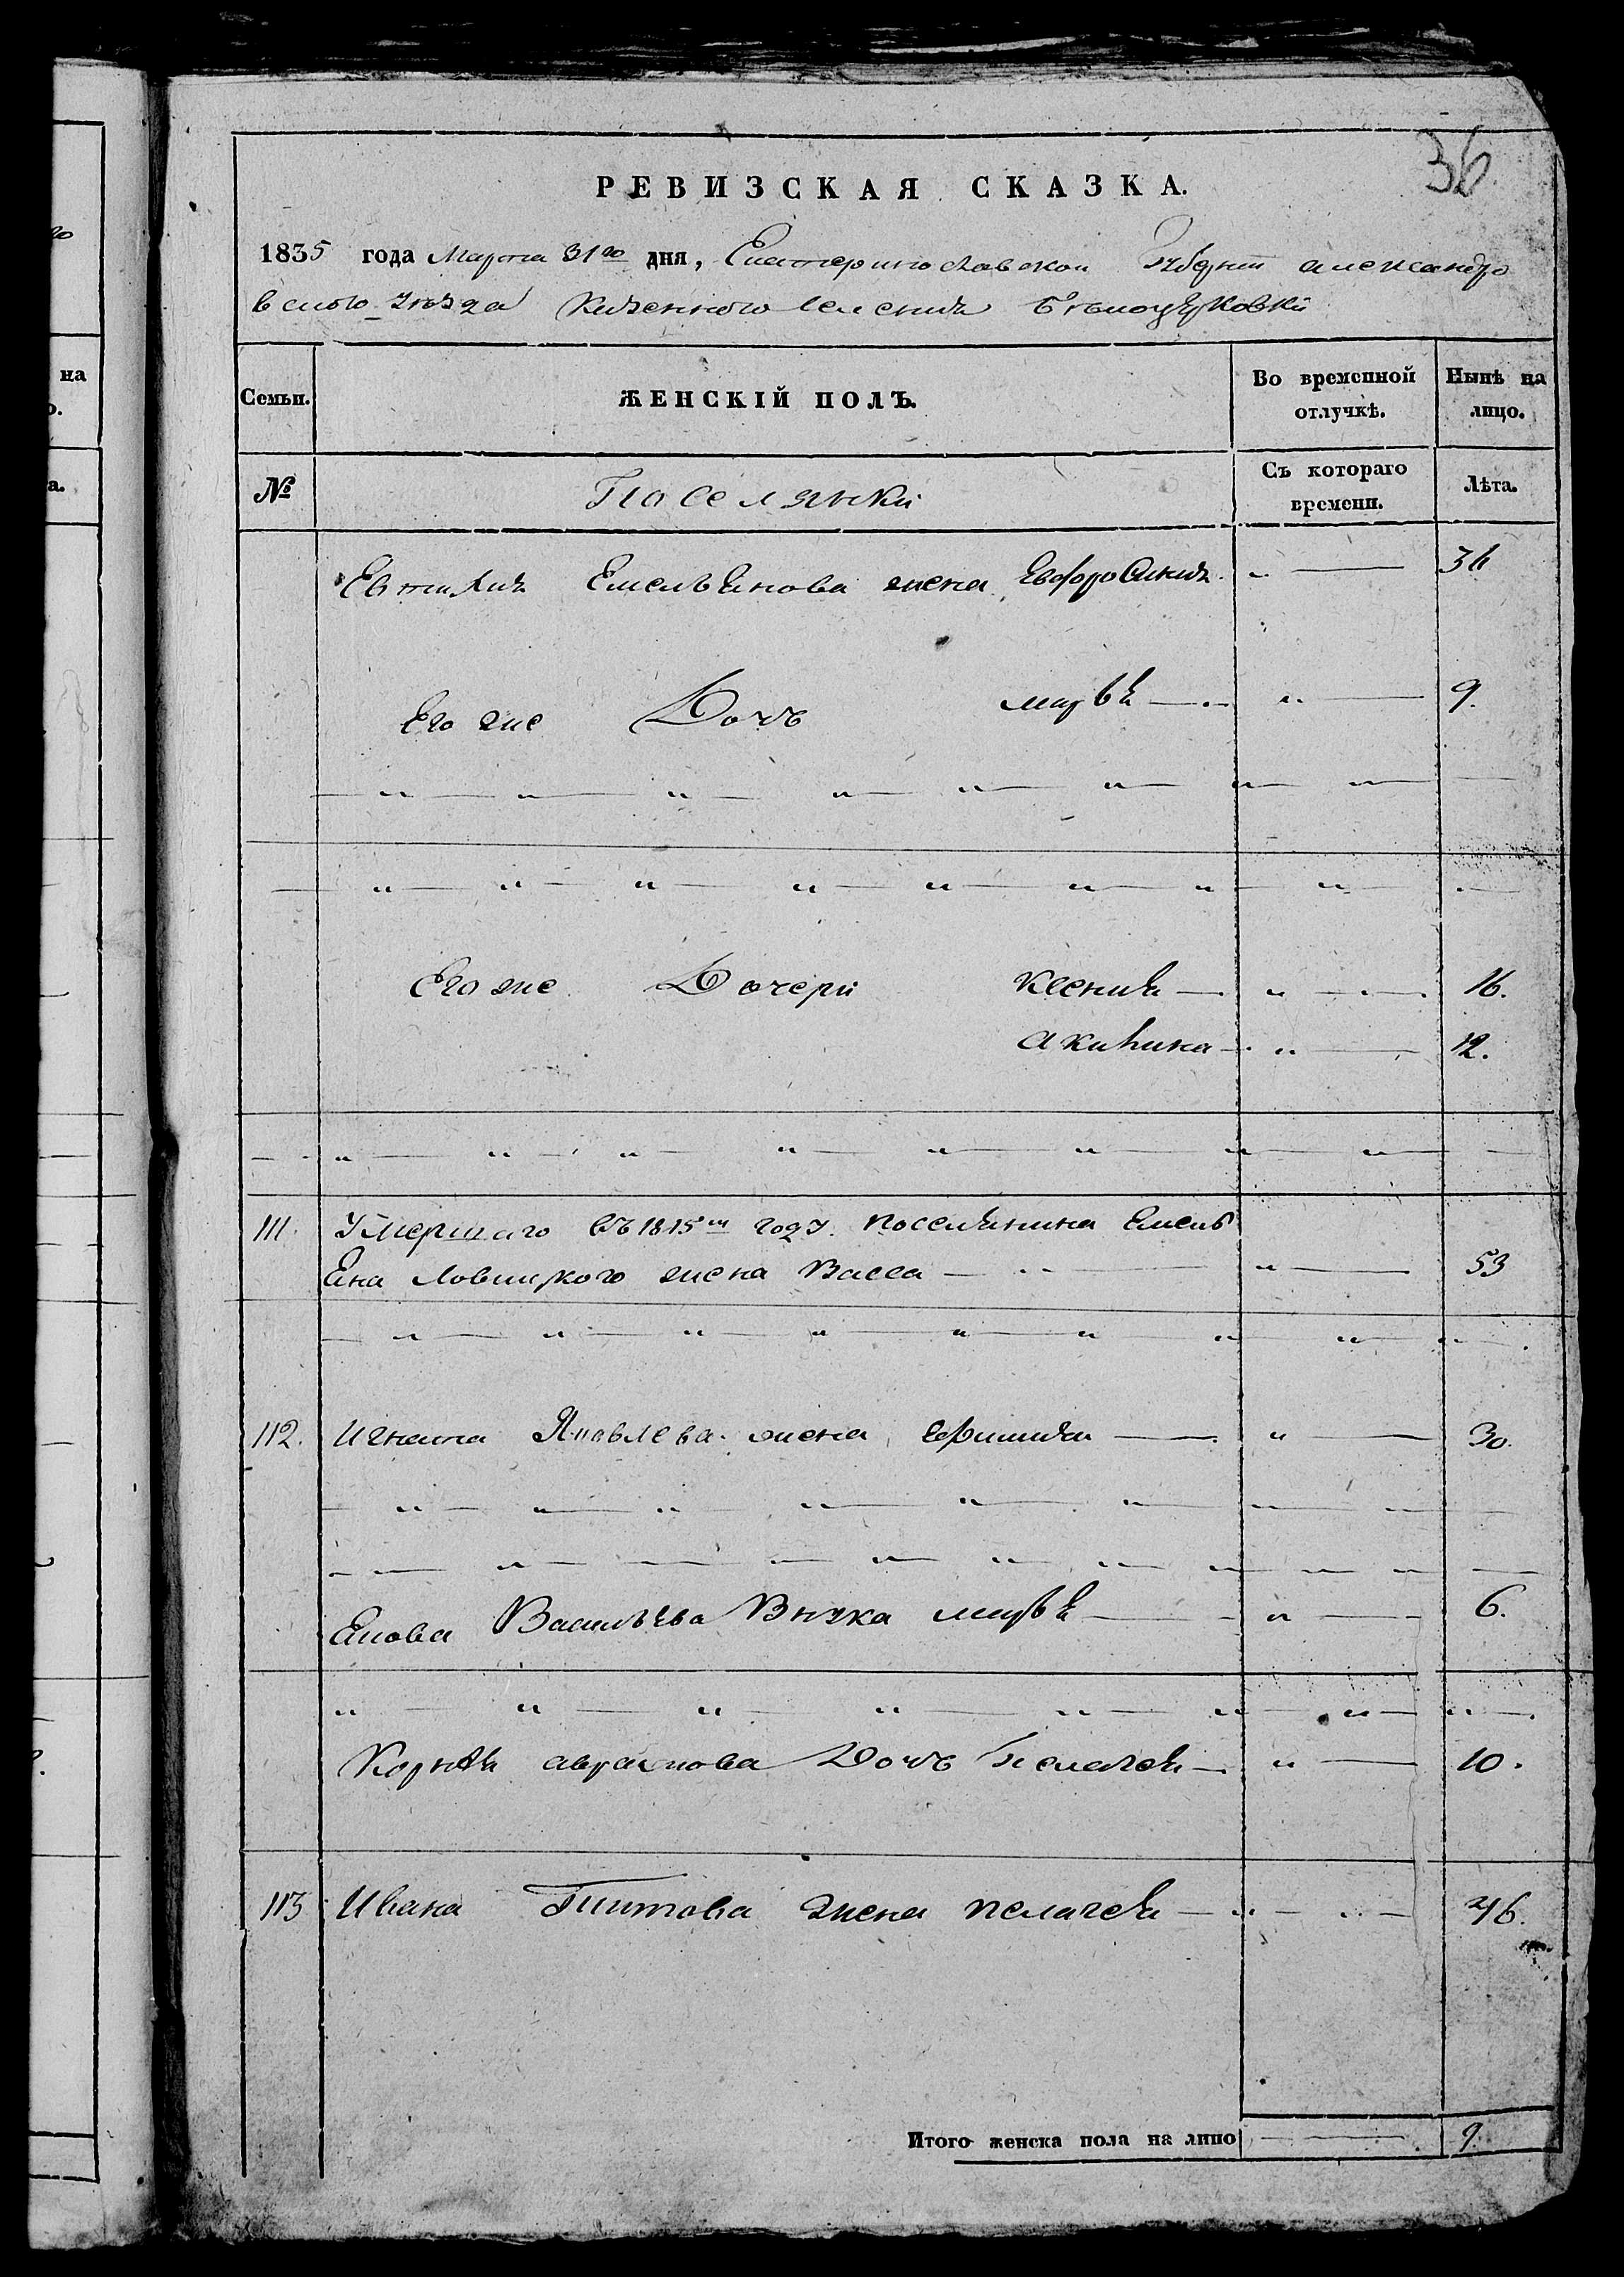 36
РЕВИЗСКАЯ СКАЗКА.
1835 года Марта 31го дня, Екатеринославской Губерніи александро
вского уѣзда Казенного селенія Бѣлоцерковки
на
Семьи.
ЖЕНСКІЙ ПОЛЪ.
Во временной отлучкѣ.
Нынѣ на лицо.
№
Поселянки
Съ котораго времени.
Лѣта.
Евтихия Емельянова жена Евфросиния 36
Его же Дочь марья 9.
Его же Дочери Ксения 16.
акилина 12.
111. Умершаго въ 1815м году поселянина Емель
яна жена Васса 53
112. Игната Яковлева жена 30.
Якова Васильева Внука марья 6.
Корнея аврамова Дочь Пелагея 10.
113 Ивана Титова жена пелагея 46.
Итого женска пола на лицо 9.